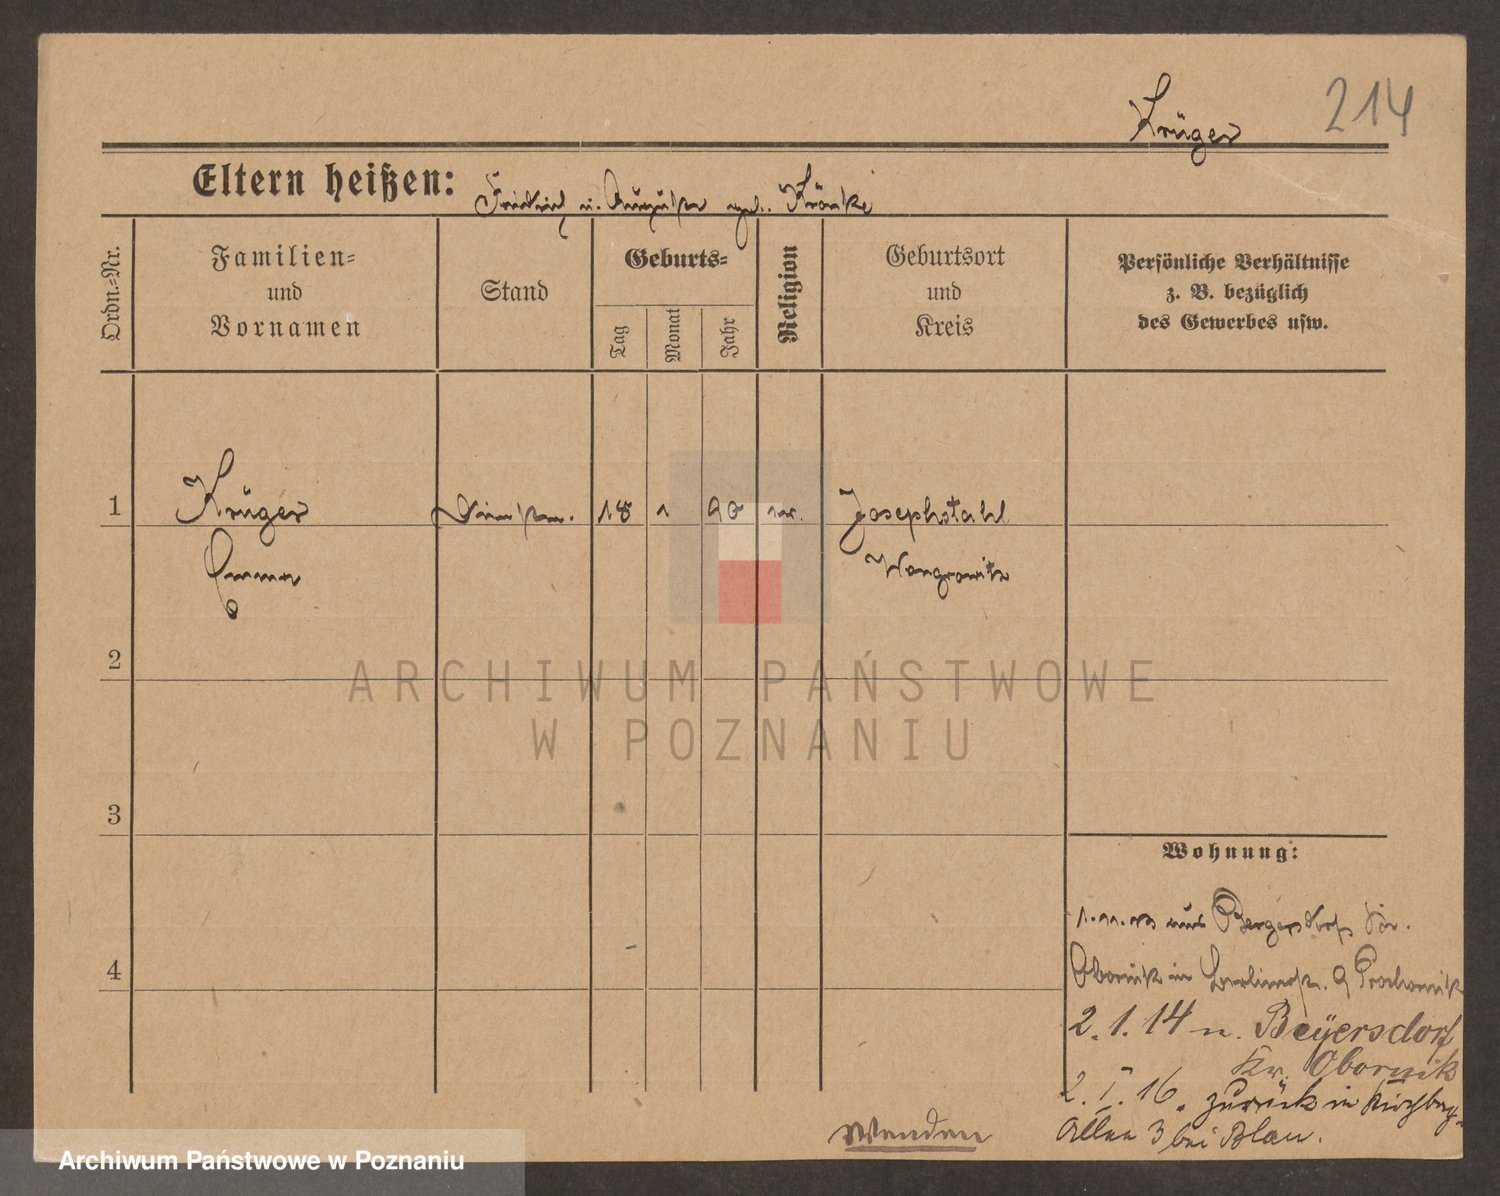 Krüger 214
Eltern heißen: Friedrich u. Auguste geb. Krönke
Ordn.-Nr.
Familien-
und
Vornamen
Stand
Geburts-
Tag
Monat
Jahr
Religion
Geburtsort
und
Kreis
Persönliche Verhältnisse
z. B. bezüglich
des Gewerbes usw.
1 Krüger 18 1 90 ev. Josephstahl
Emma Wongrowitz
2
ARCHIWUM PAŃSTWOWE
W POZNANIU
3
Wohnung:
1.11.13 aus
4
Obornik in Berlinerstr. 9
2.1.14 n. Beyersdorf
Kr. Obornik
2.I.16. zurück in
Allee 3 bei Blau.
Wenden
Archiwum Państwowe w Poznaniu